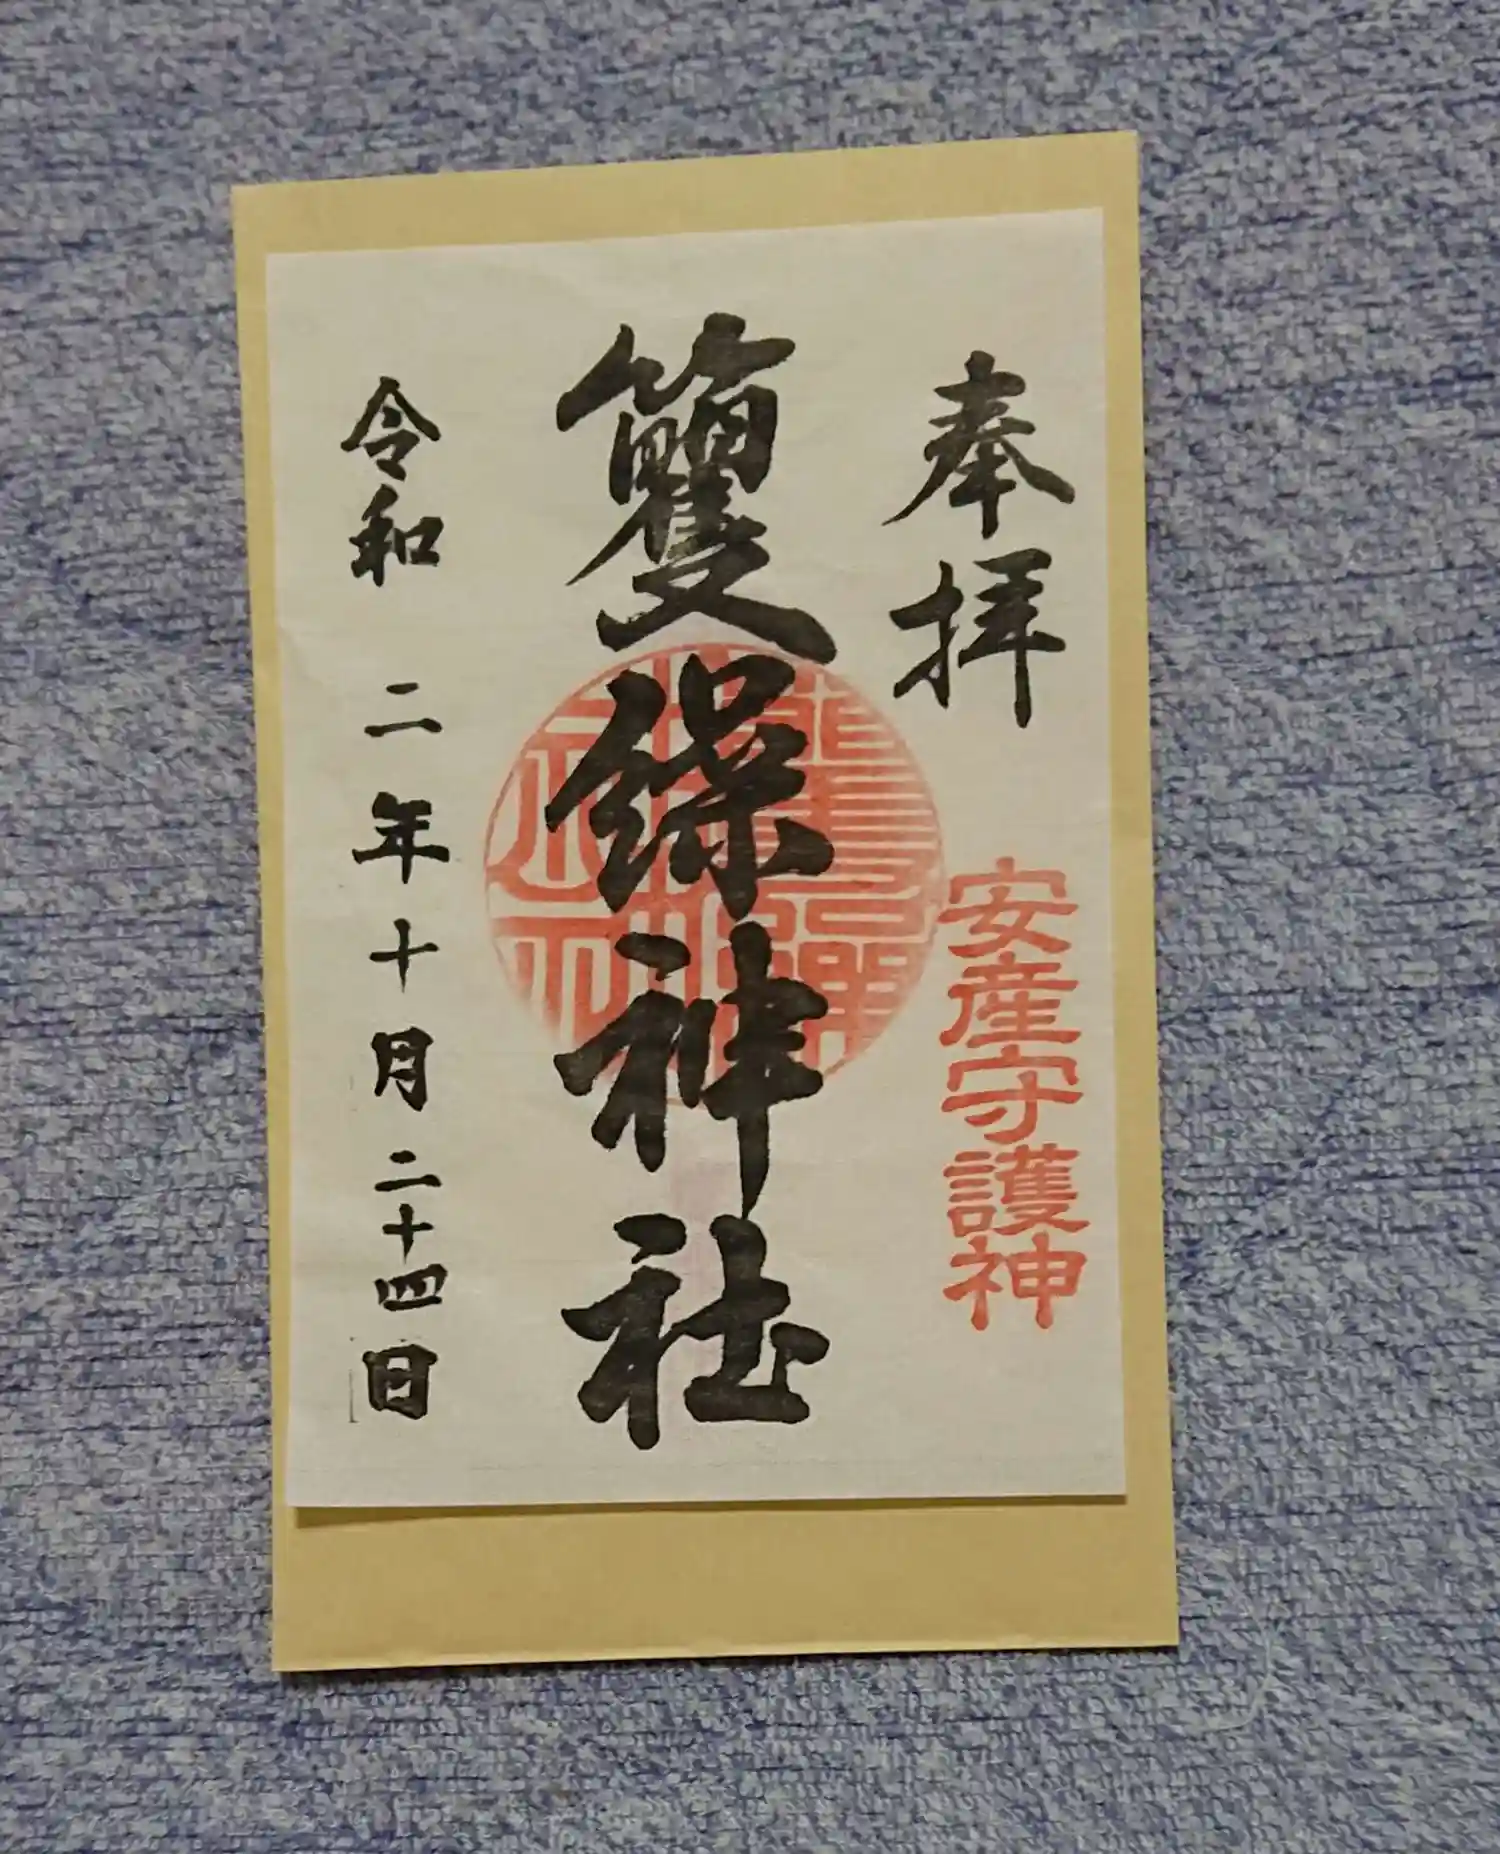 奉拝
安産守護神
籰繰神社
令和二年十月二十四日